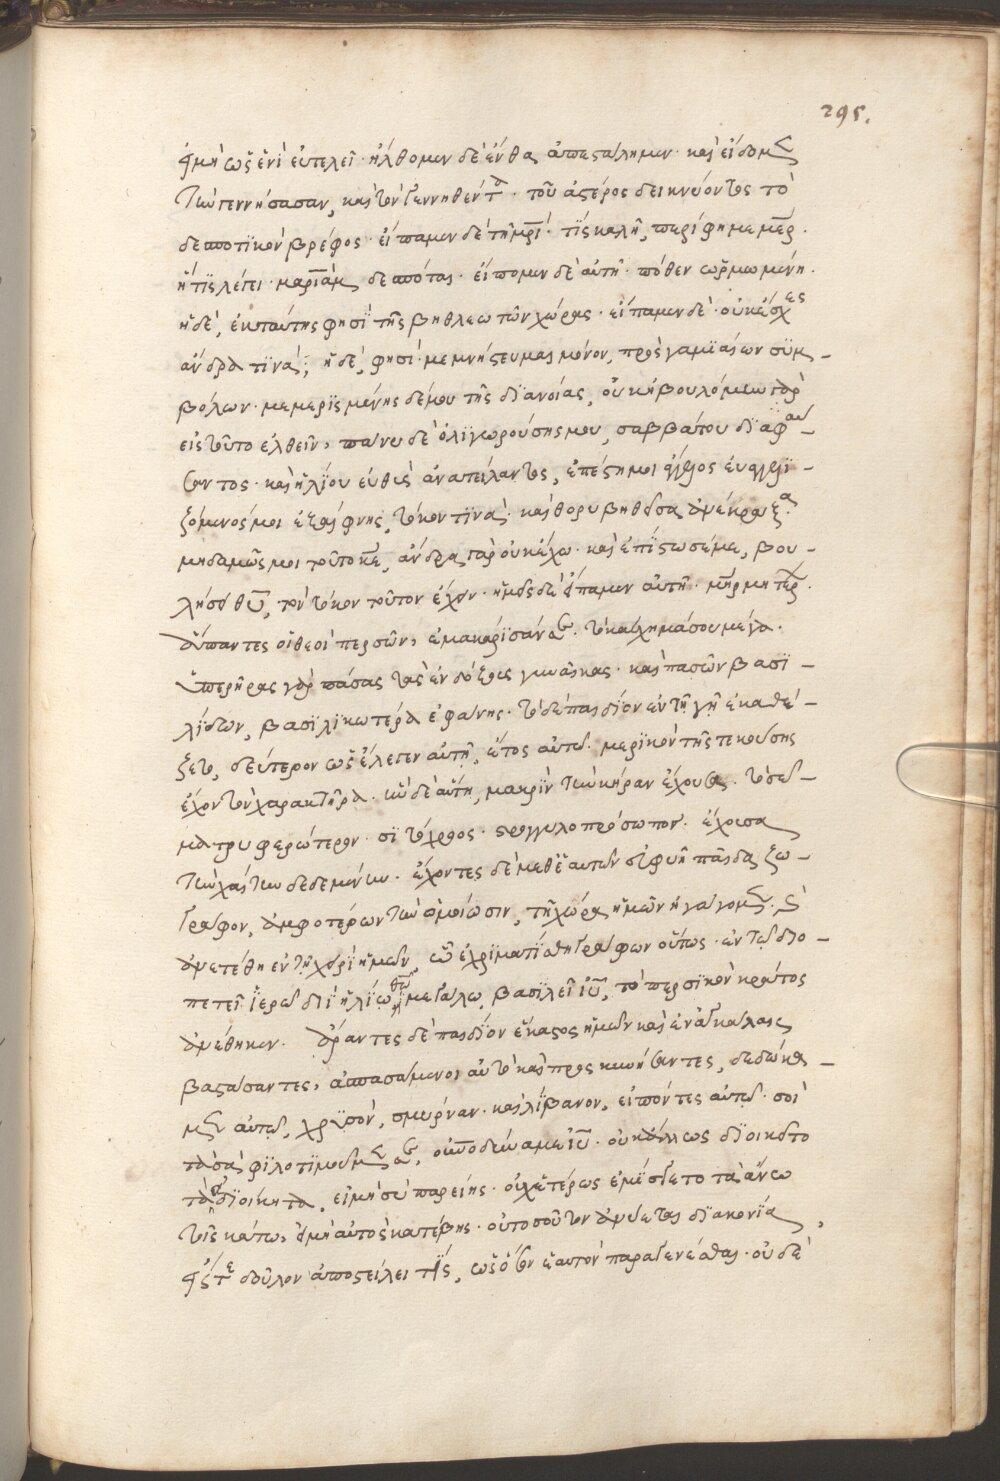 295.
εἰ μὴ ὡς ἑνὶ εὐτελεῖ· ἤλθομεν δὲ ἔνθα ἀπεστάλημεν· καὶ εἴδομεν
τὴν γεννήσασαν, καὶ τὸν γεννηθέντα· τοῦ ἀστέρος δεικνύοντος τὸ
δεσποτικὸν βρέφος· εἴπαμεν δὲ τῇ μρι· τίς καλῇ, περίφημε μερ·
ἥτις λέγει· μαριὰμ δεσπόται· εἴπομεν δὲ αὐτῇ· πόθεν ὡρμωμένη·
ἡ δὲ, ἐκ ταύτης φησὶ τῆς βηθλεωτῶν χώρας· εἴπαμεν δέ· οὐκ ἔσχες
ἄνδρα τινά; ἡ δὲ, φησί· μεμνήστευμαι μόνον, προσγαμιαίων συμ-
βόλων· μεμερισμένης δέ μου τῆς διανοίας, οὐκ ἠβουλόμην γὰρ
εἰς τοῦτο ἐλθεῖν, πάνυ δὲ ὀλιγωρούσης μου, σαββάτου διαφαύ-
σαντος· καὶ ἡλίου εὐθὺς ἀνατείλαντος, ἐπέστη μοι ἄγγελος εὐαγγελι-
ζόμενός μοι ἐξαίφνης, τόκον τινά· καὶ θορυβηθεῖσα ἀνέκραξα·
μηδαμῶς μοι τοῦτο κε, ἄνδρα γὰρ οὐκ ἔχω· καὶ ἐπίστωσέ με, βου-
λήσει θυ, τὸν τόκον τοῦτον ἔχειν· ἡμεῖς δὲ εἴπαμεν αὐτῇ· μηρ μητέρων·
ἅπαντες οἱ θεοὶ περσῶν, ἐμακάρισάν σε· τὸ καύχημά σου μέγα·
ὑπερῆρας γὰρ πάσας τὰς ἐνδόξους γυναῖκας· καὶ πασῶν βασι-
λίδων, βασιλικωτέρα ἐφάνης· τὸ δὲ παιδίον ἐν τῇ γῇ ἐκαθέ-
ζετο, δεύτερον ὡς ἔλεγεν αὐτὴ, ἔτος αὐτοῦ· μερικὸν τῆς τεκούσης
ἔχον τὸν χαρακτῆρα· ἦν δὲ αὕτη, μακρὶν τὴν κήραν ἔχουσα· τὸ σῶ-
μα τρυφερώτερον· σιτόχροος· στρογγυλοπρόσωπον· ἔχουσα
τὴν χαίτην δεδεμένην· ἔχοντες δὲ μεθ' ἑαυτῶν εὐφυῆ παῖδα ζω-
γράφον, ἀμφοτέρων τὴν ὁμοίωσιν, τῇ χώρᾳ ἡμῶν ἠγάγομεν· καὶ
ἀνετέθη ἐν τῇ χειρὶ ἡμῶν, ᾧ ἐχρηματίσθη γράφων οὕτως· ἐν τῷ διο-
πετεῖ ἱερῷ διὶ ἡλίῳ θῷ μεγάλῳ βασιλεῖ ιυ, τὸ περσικὸν κράτος
ἀνέθηκεν. ἄραντες δὲ παιδίον ἕκαστος ἡμῶν καὶ ἐν ἀγκάλαις
βαστάσαντες, ἀσπασάμενοι αὐτὸ καὶ προσκυνήσαντες, δεδώκα-
μεν αὐτῷ, χρυσὸν, σμύρναν· καὶ λίβανον, εἰπόντες αὐτῷ· σοὶ
τὰ σὰ φιλοτιμοῦμέν σε, οὐροδύναμε ιυ· οὐκ ἄλλως διοικεῖτο
τὰ ἀδιοίκητα, εἰ μὴ σὺ παρείης· οὐχ ἑτέρως ἐμίσγετο τὰ ἄνω
τοῖς κάτω, εἰ μὴ αὐτὸς κατέβης· οὐ τοσοῦτον ἀνύεται διακονία,
εἴ ὅτε δοῦλον ἀποστείλει τὶς, ὡς ὅταν ἑαυτὸν παραγενέσθαι· οὐδὲ